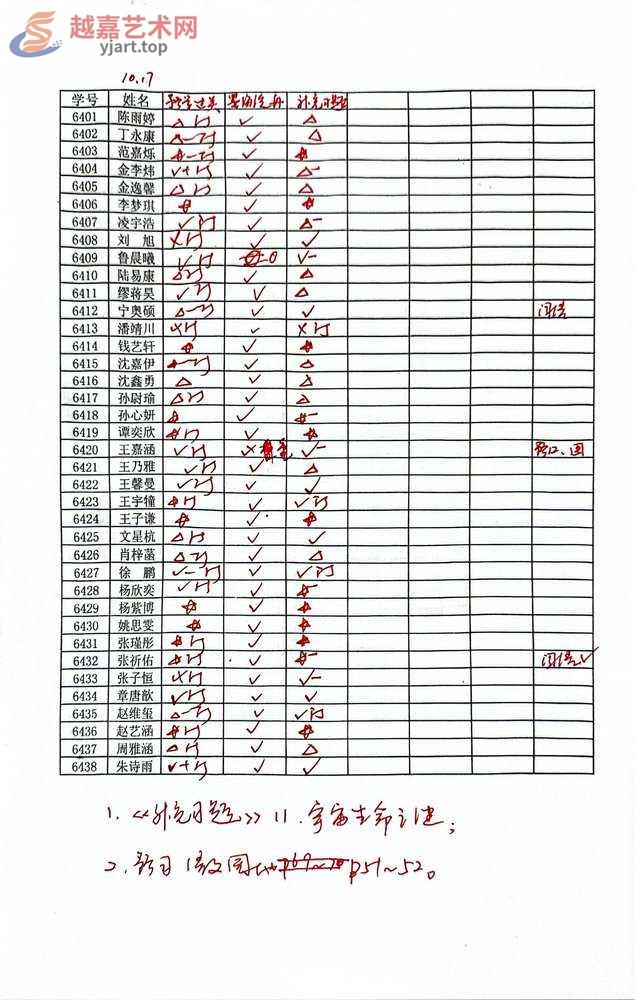 越嘉艺术网
yjart.top
10.17
学号 姓名 预学过关 补充习题
6401 陈雨婷 △订 ✓ △
6402 丁永康 △-订 ✓ △
6403 范嘉烁 ☆-订 ✓ ☆
6404 金李炜 ✓+订 ✓ △-
6405 金逸馨 △订 ✓ △
6406 李梦琪 ☆ ✓ ☆
6407 凌宇浩 ✓订 ✓ △-
6408 刘旭 ×订 ✓ ✓
6409 鲁晨曦 ✓订 ✓-
6410 陆易康 △订 ✓ △
6411 缪蒋昊 ✓订 ✓ △
6412 宁奥硕 △-订 ✓ ✓
6413 潘靖川 ×订 ✓ ×订
6414 钱艺轩 ☆ ✓ ☆
6415 沈嘉伊 ☆-订 ✓ △
6416 沈鑫勇 △ ✓ △
6417 孙尉瑜 △订 ✓ △
6418 孙心妍 ☆ ✓ ☆-
6419 谭奕欣 ☆订 ✓ ☆
6420 王嘉涵 ✓订 ✓-
6421 王乃雅 ✓订 ✓ △
6422 王馨曼 ✓订 ✓ ✓
6423 王宇犝 ☆订 ✓ ✓订
6424 王子谦 ☆ ✓ ☆
6425 文星杭 △订 ✓ ✓
6426 肖梓菡 △订 ✓ △
6427 徐鹏 ✓-订 ✓ ✓订
6428 杨欣奕 ✓订 ✓ ☆-
6429 杨紫博 ☆ ✓ ☆
6430 姚思雯 ☆ ✓ ☆
6431 张瑾彤 ☆订 ✓ ☆
6432 张祈佑 ☆订 ✓ ☆- ✓
6433 张子恒 ×订 ✓ ✓-
6434 章唐歆 ✓订 ✓ ✓
6435 赵维玺 △-订 ✓ ✓订
6436 赵艺涵 ☆订 ✓ ☆
6437 周雅涵 △订 ✓ △
6438 朱诗雨 ✓+订 ✓ ✓
1.《补充习题》11.宇宙生命之谜;
2. 语文园地 P51~52。